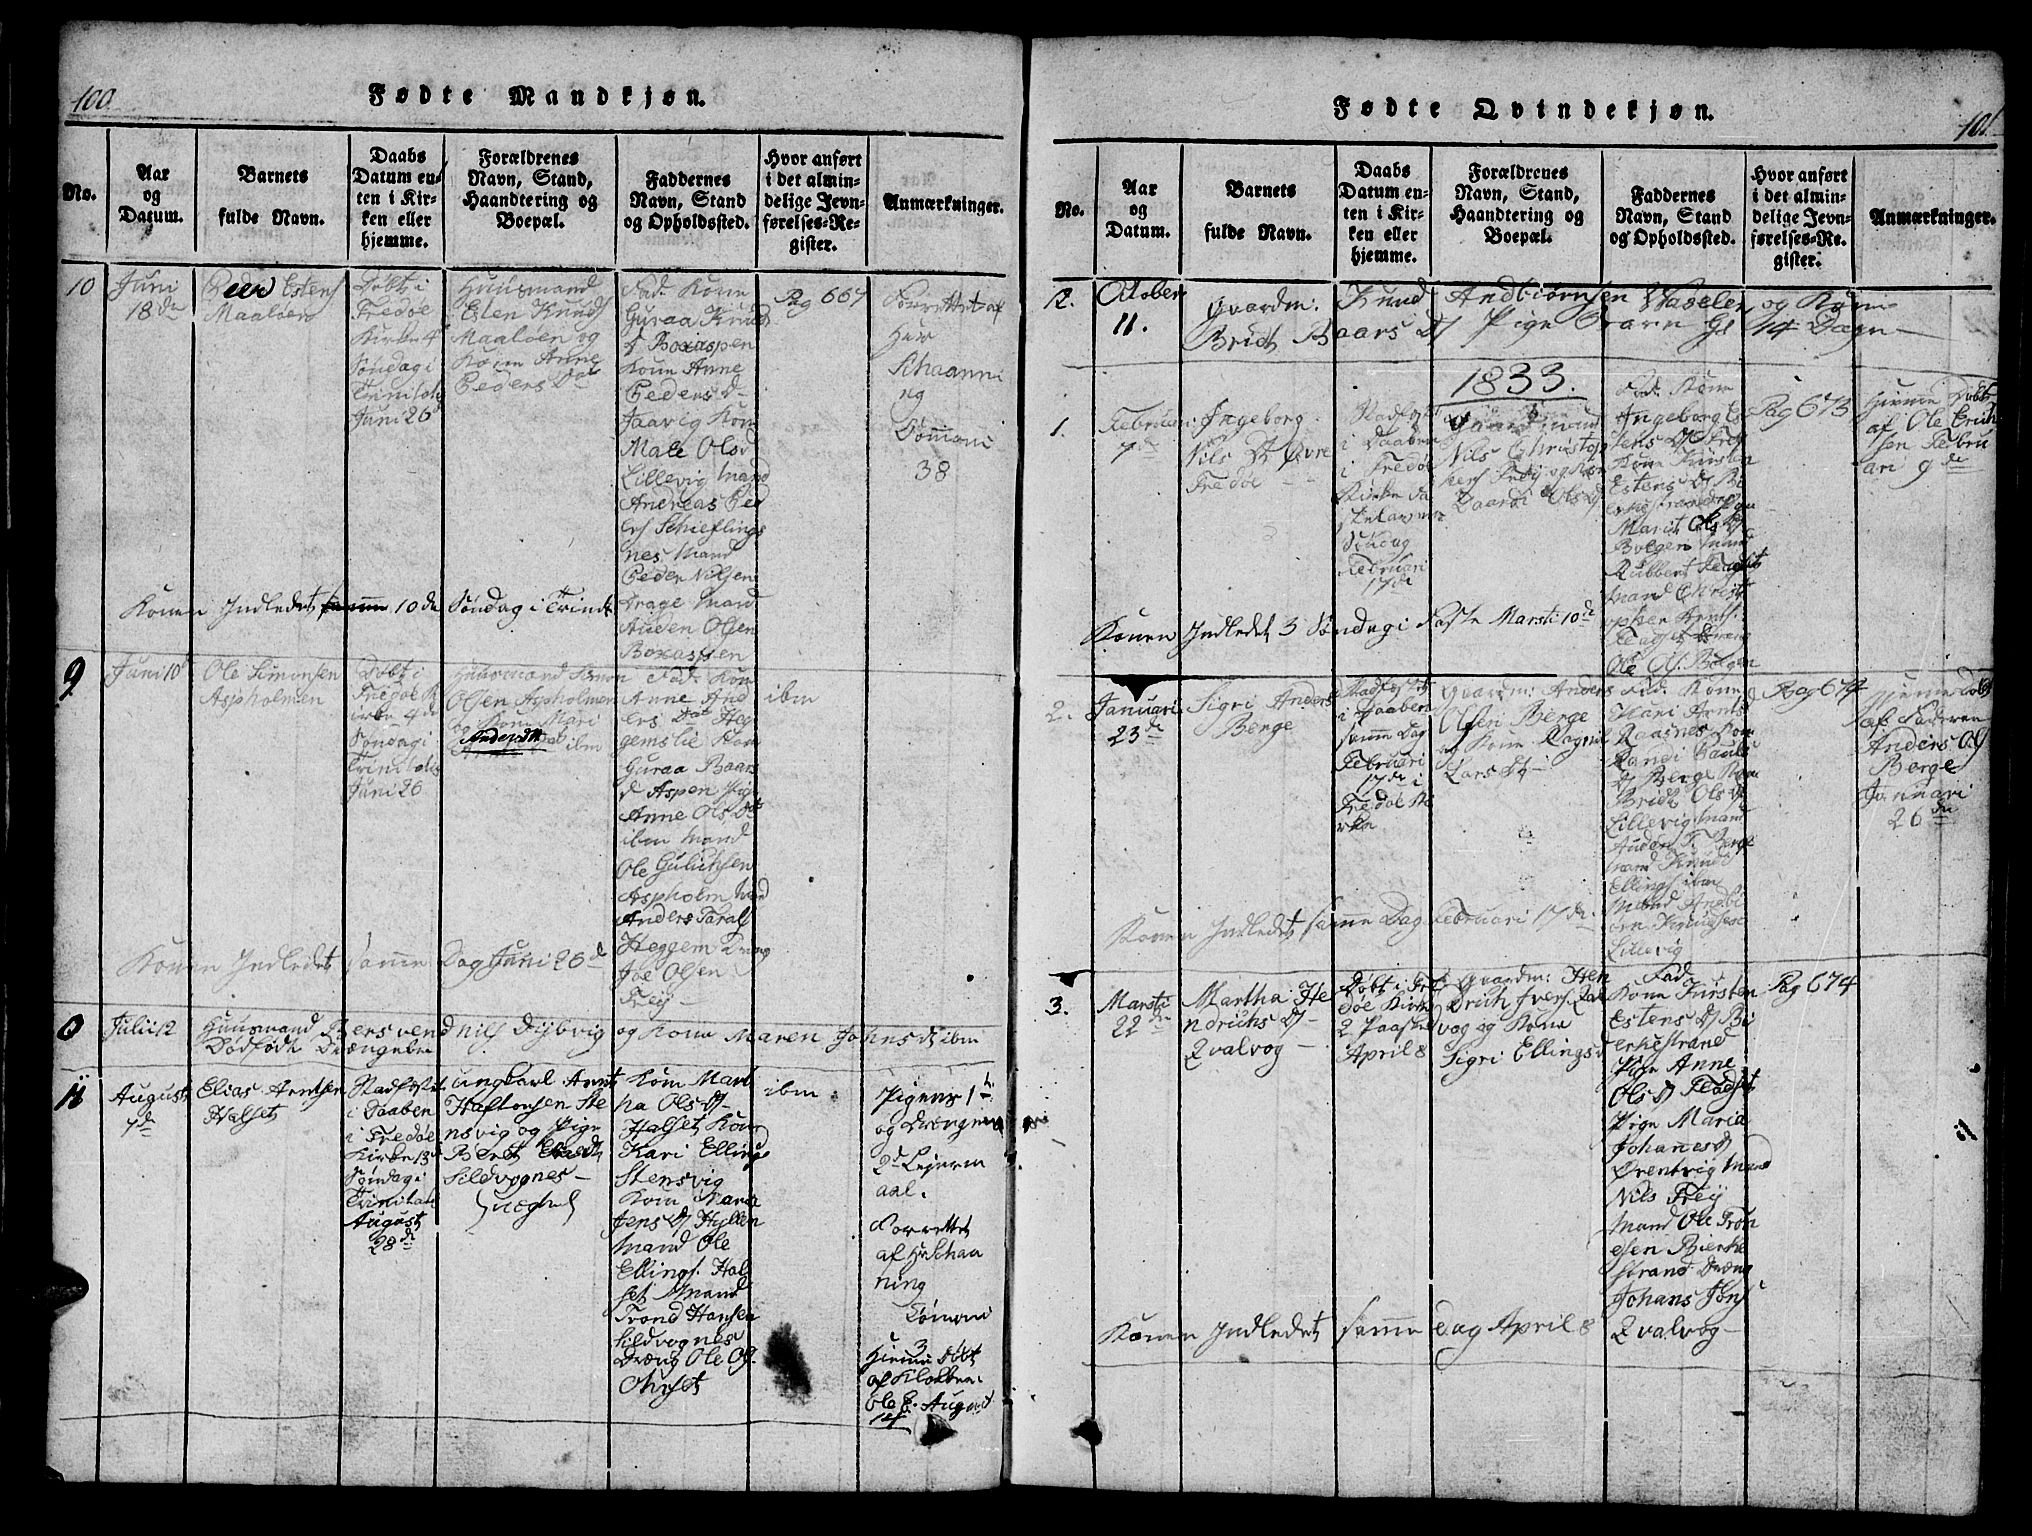 100
Fødte Mandkjøn.
No.
Aar
og
Datum.
Barnets
fulde Navn.
Daabs
Datum en-
ten i Kir-
ken eller
hjemme.
Forældrenes
Navn, Stand,
Haandtering og
Boepæl.
Faddernes
Navn, Stand
og Opholdssted.
Hvor anført
i det almin-
delige Jevn-
førelses-Re-
gister.
Anmærkninger.
10
Juni
18de
Peder Estens
Maaløen
Døbt i
Fredøe
Kirke 4de
Søndag i
Trinitatis
Juni 26
Huusmand
Esten Knuds
Maaløen og
Kone Anne
Peders Dat
Fad. Kone
Guraa Knuds
d Boxaspen
Kone Anne
Peders D
Jaavig Kone
Male Olsd
Lillevig Mand
Andreas Ped
ers Schieflings
nes Mand
Peder Nilsen
Arage Mand
Auden Olsen
Boxaspen
Pag 667
Forrettet af
Her
Schaanni
ng
Tømoni
38
Konen Indledet samme 10de Søndag i Trinit
9
Juni 10
Ole Simonsen
Aspholmen
Døbt i
Fredøe K
irke 4de
Søndag i
Trinitatis
Juni 26
Huusmand Simon
Olsen Aspholmen
og Kone Mari
Andersdtt ibm
Fad. Kon
Anne And
ers Dat Heg
gemslie Kone
Guraa Baars
d Aspen Pige
Anne Ols Dat
ibm Mand
Ole Gulichsen
Aspholm Mand
Anders Taral
Heggem Dreng
Joe Olsen
Frey
ibm
Konen Indledet samme Dag Juni 26d
0
Julii 12
Huusmand Bersvend Nils Dybvig og Kone Maren Johns D ibm
Dødfødt Drængebn
11
August
7de
Elias Arntsen
Halset
Stadfæstet
i Daaben
i Fredøe
Kirke 13
Søndag i
Trinitatis
August
28de
Ungkarl Arnt
Haftorsen Ste
nsvig og Pige
Beret
Sildvognes
Kone Mart
ha Ols D
Halset Kone
Kari Ellings
Stensvig
Kone Maria
Jens D Hyllen
Mand Ole
Ellings. Hal
set Mand
Trond Hansen
Sildvognes
Dreng Ole Ols.
Ohrset
ibm
Pigens 1
og Drengens
2d Lejerm
aal.
Forrettet
af Hr Schaa
ning
Tømoni
3
Hieme Døbt
af Klokken
Ole E. August
14
101
Fødte Qvindekjøn.
No.
Aar
og
Datum.
Barnets
fulde Navn.
Daabs
Datum en-
ten i Kir-
ken eller
hjemme.
Forældrenes
Navn, Stand,
Haandtering og
Boepæl.
Faddernes
Navn, Stand
og Opholdssted.
Hvor anført
i det almin-
delige Jevn-
førelses-Re-
gister.
Anmærkninger.
12.
October
11.
Gaardm: Knud Andbiørnsen Waseler og Kone
Bridt Baars D Pige Barn Gl 14 Dage
1833.
1.
Februari
7de
Ingeborg
Nils D Øvre
Fredøe
Stadfæstet
i Daaben
i Fredøe
Kirke Fa
stelavens
Søndag
Februari
17de
Nils Christop
hers Frey og Kone
Ols D
Fad. Kone
Ingeborg Es
tens D Frey
Kone Kirsten
Estens D Bi
erkestrand Pige
Marit Ols D
Bolgen Mand
Rubbert Fladset
Mand Christ
opher
Fladset Dreng
Ole Ols. Bolgen
Pag 673
Hieme Døbt
af Ole Erich
sen Febru
ari 9de
Konen Indledet 3 Søndag i Faste Marsti 10de
2.
Januari
23de
Sigri Anders
Berge
Stadfæstet
i Daaben
samme Dag
Februari
17de i
Fredøe Ki
rke
Gaardm: Anders
Olsen Berge
og Kone Ragnil
Lars D
Fad. Kone
Kari Arnts
Raasnes Kone
Randi Pauls
D Berge Kone
Bridt Ols D
Lillevig Mand
Auden T. Berge
Mand Knud
Ellings ibm
Mand Andbi
ørn Knudsen
Lillevig
Pag 674
Hieme Døbt
af Faderen
Anders Ols
Berge
Januari
26de
Konen Indledet samme Dag Februari 17de
3.
Marsti
22de
Martha He
ndrichs D
Qvalvog
Døbt i Fre
døe Kirke
2 Paaske
April 8
Gaardm: Hen
drich Ivers. Qval
vog og Kone
Sigri Ellings d
Fad.
Kone Kirsten
Estens D Bi
erkestrand
Pige Anne
Ols D Fladset
Pige Maria
Johanes D
Ørentvig Mand
Nils Frey
Mand Ole Tron
esen Bierke
strand Dreng
Johans Jons
Qvalvog
Pag 674
Konen Indledet samme dag April 8